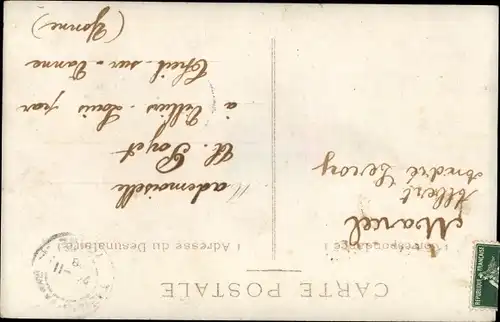 CARTE POSTALE
(Correspondance)
(Adresse du Destinataire)
Marcel
Albert
André Leroy
Mademoiselle
Payot
à Villiers-Louis par
Theil-sur-Vanne
(Yonne)
REPUBLIQUE FRANÇAISE